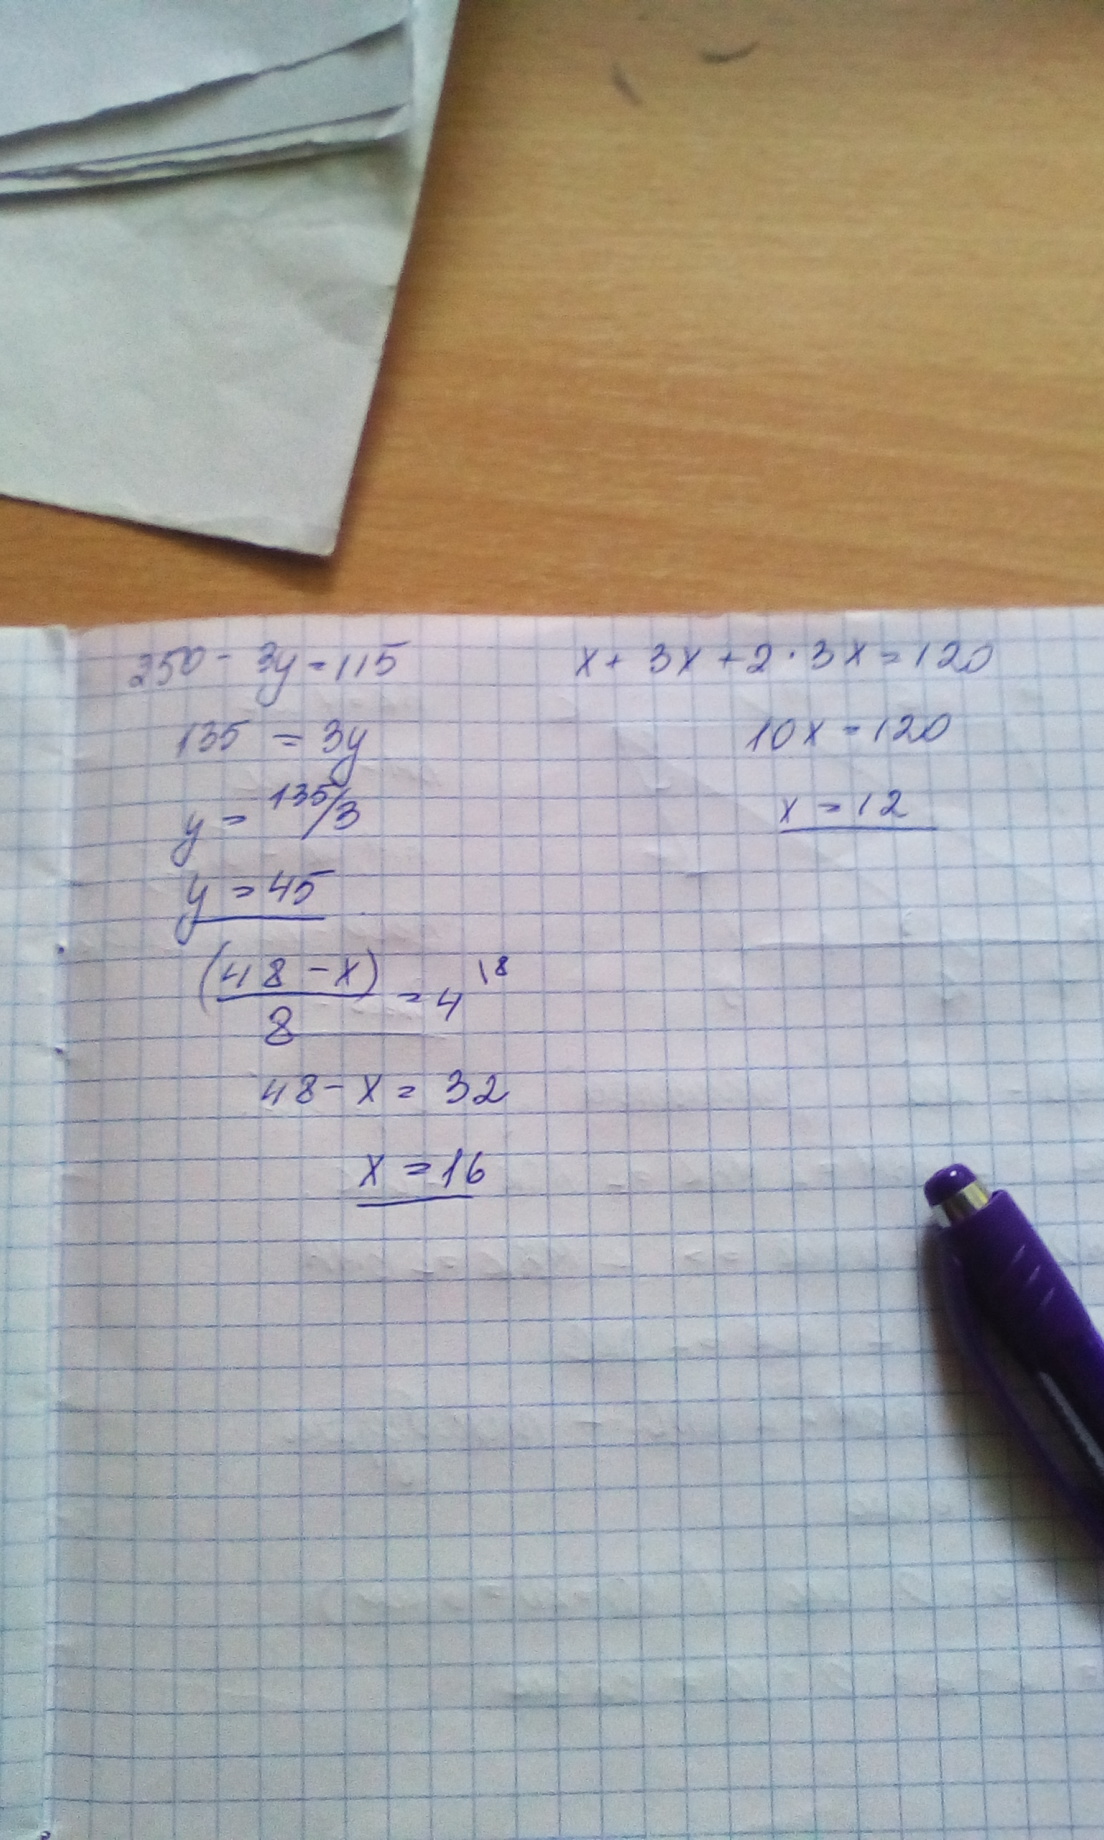 250 - 3y = 115
135 = 3y
y = 135/3
y = 45
(48 - x)
8
= 4 \8
48 - x = 32
x = 16
x + 3x + 2 · 3x = 120
10x = 120
x = 12